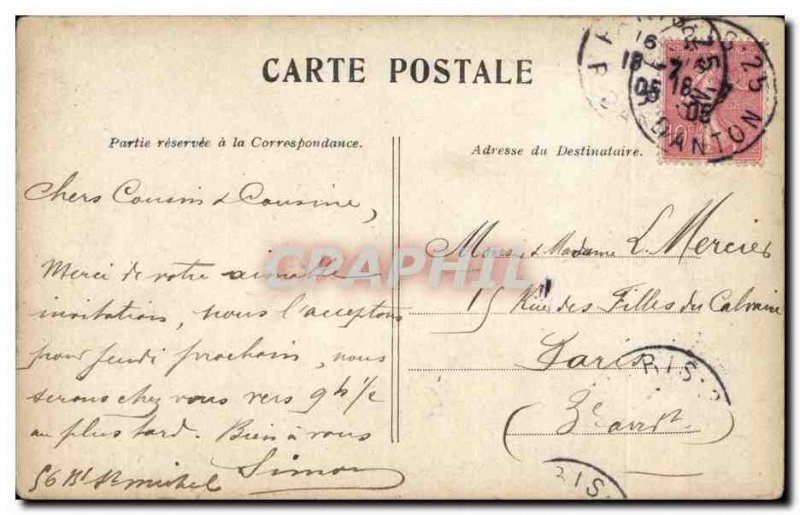 CARTE POSTALE
Partie réservée à la Correspondance.
Adresse du Destinataire.
Chers Cousin & Cousine,
Merci de votre aimable
invitation, nous l'acceptons
pour jeudi prochain, nous
serons chez vous vers 9h 1/2
au plus tard. Bien à vous
Simon
56 Bd St michel
Mons. & Madame L Mercier
15 Rue des Filles du Calvaire
Paris
3e arrdt
CPAPHIL
DANTON
25
10
RIS
RIS